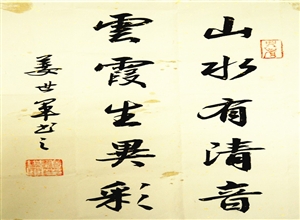 山水有清音
雲霞生異彩
姜世軍書之